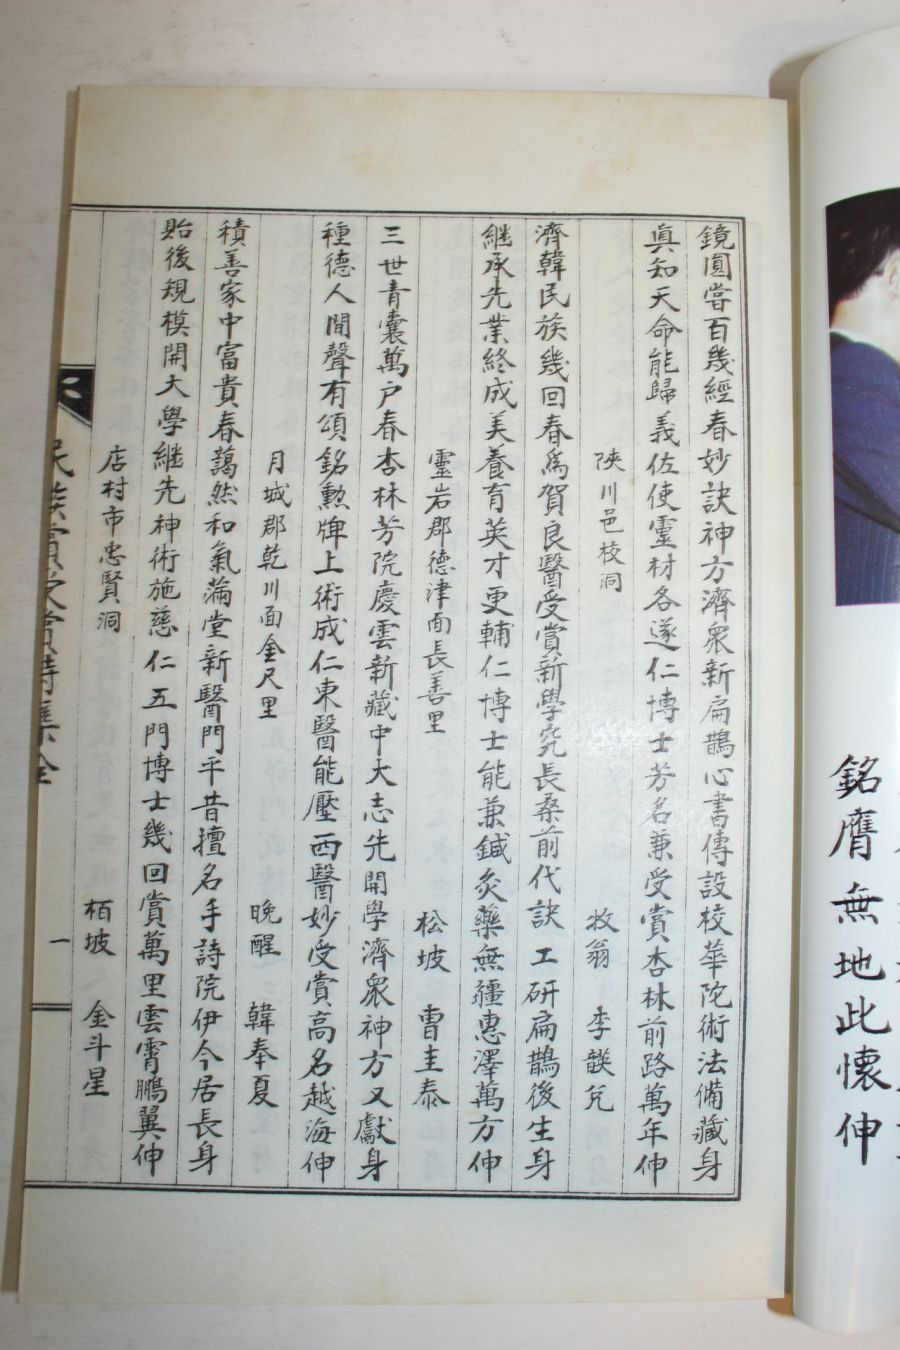 銘膺無地此懷伸
鏡圓嘗百幾經春妙訣神方濟衆新扁鵲心書傳設校華陀術法備藏身
眞知天命能歸義佐使靈材各遂仁博士芳名兼受賞杏林前路萬年伸
陜川邑校洞 牧翁 李
濟韓民族幾回春爲賀良醫受賞新學究長桑前代訣工研扁鵲後生身
繼承先業終成美養育英才更輔仁博士能兼鍼灸藥無疆惠澤萬方伸
靈岩郡德津面長善里 松坡 曺圭泰
三世青囊萬戶春杏林芳院慶雲新藏中大志先開學濟衆神方又獻身
種德人間聲有頌銘勲牌上術成仁東醫能壓西醫妙受賞高名越海伸
月城郡乾川面金尺里 晩醒 韓奉夏
積善家中富貴春藹然和氣滿堂新醫門平昔擅名手詩院伊今居長身
貽後規模開大學繼先神術施慈仁五門博士幾回賞萬里雲霄鵬翼伸
店村市忠賢洞 栢坡 金斗星
民族賞受賞詩集全
一